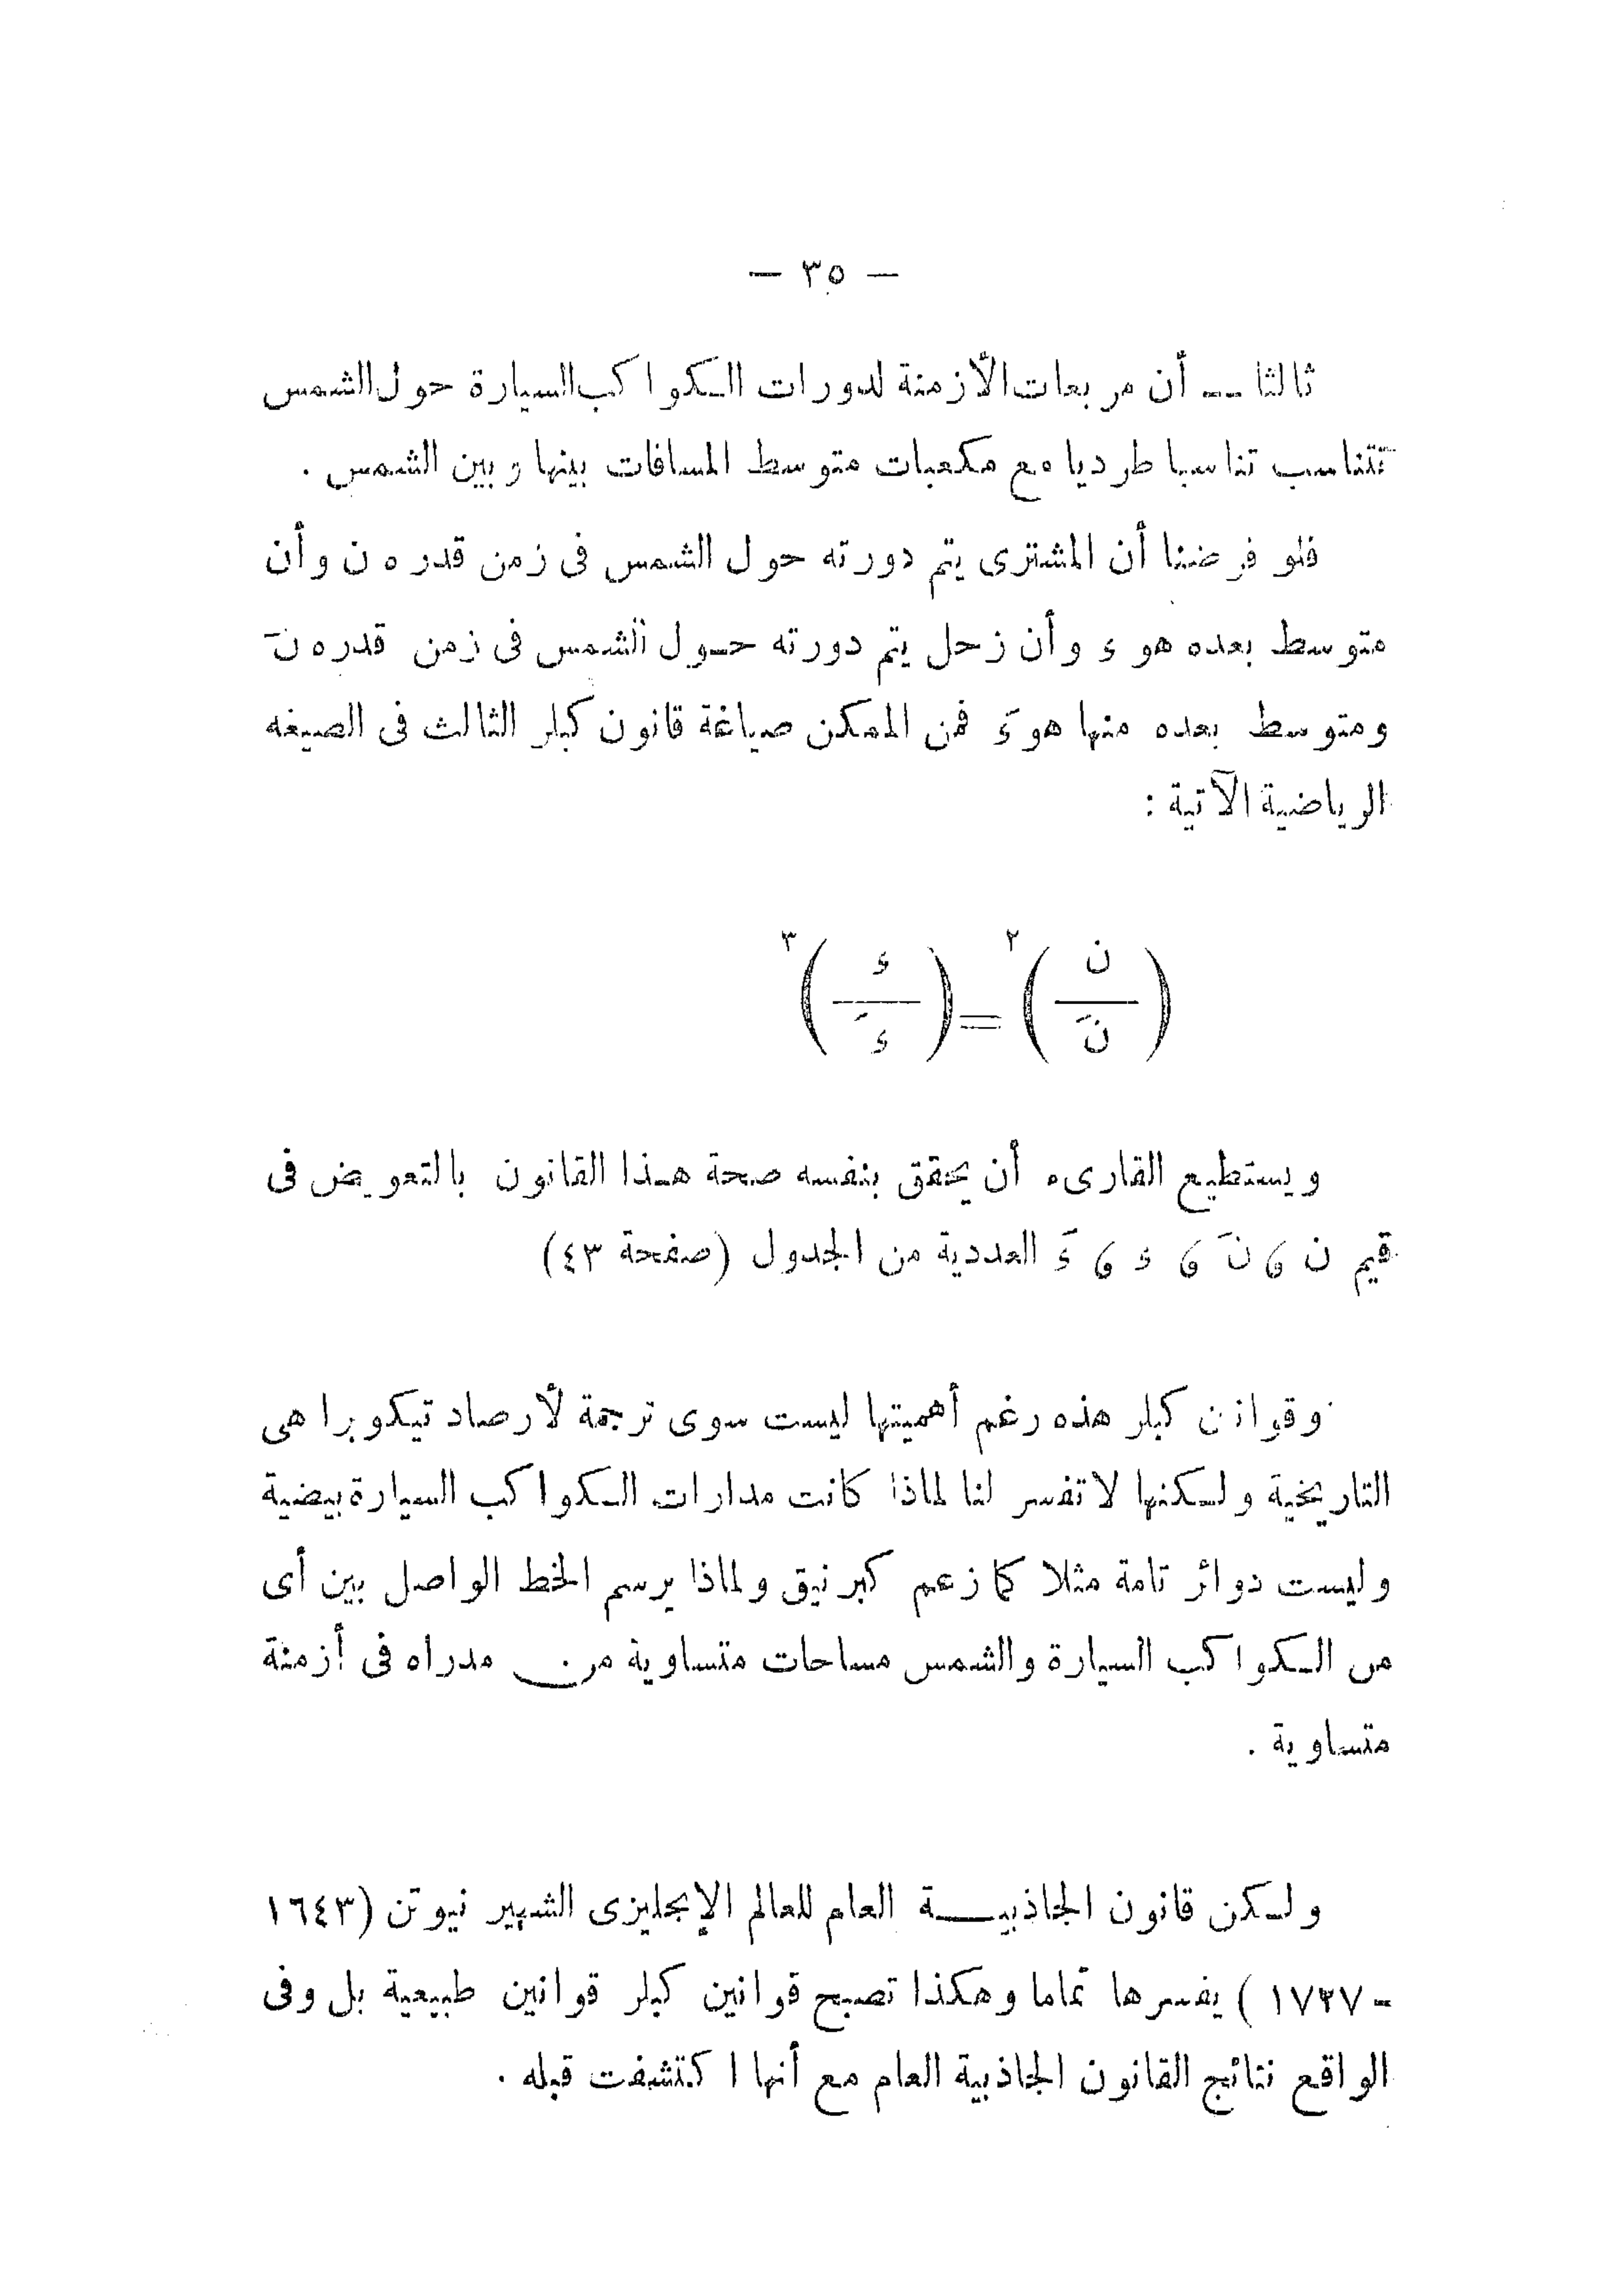 — ٣٥ —
ثالثا — أن مربعات الأزمنة لدورات الكواكب السيارة حول الشمس
تتناسب تناسبا طرديا مع مكعبات متوسط المسافات بينها وبين الشمس .
فلو فرضنا أن المشترى يتم دورته حول الشمس فى زمن قدره ن وأن
متوسط بعده هو ء وأن زحل يتم دورته حول الشمس فى زمن قدره نَ
ومتوسط بعده منها هو ءَ فمن الممكن صياغة قانون كبلر الثالث فى الصيغه
الرياضية الآتية :
(ن / نَ)٢ = (ء / ءَ)٣
ويستطيع القارىء أن يحقق بنفسه صحة هذا القانون بالتعويض فى
قيم ن ، نَ ، ء ، ءَ العددية من الجدول (صفحة ٤٣)
وقوانن كبلر هذه رغم أهميتها ليست سوى ترجمة لأرصاد تيكوبراهى
التاريخية ولكنها لا تفسر لنا لماذا كانت مدارات الكواكب السيارة بيضية
وليست دوائر تامة مثلا كما زعم كبرنيق ولماذا يرسم الخط الواصل بين أى
من الكواكب السيارة والشمس مساحات متساوية من مدراه فى أزمنة
متساوية .
ولكن قانون الجاذبيـــة العام للعالم الإنجليزى الشهير نيوتن (١٦٤٣
- ١٧٢٧ ) يفسرها تماما وهكذا تصبح قوانين كبلر قوانين طبيعية بل وفى
الواقع نتائج القانون الجاذبية العام مع أنها اكتشفت قبله .